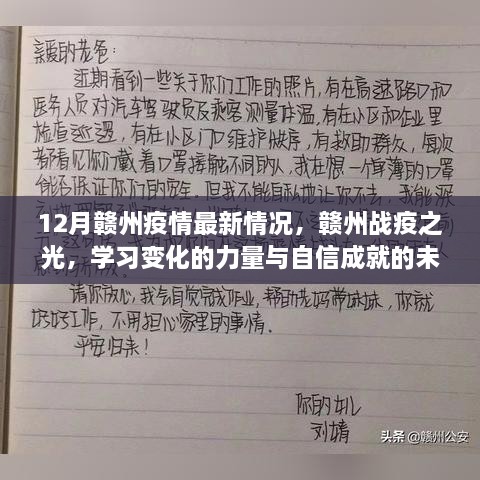 亲爱的老爸:
近期看到一些关于你们工作的照片,有在高速路口和
医务人员对汽车驾驶员及乘客测量体温,有在小区和企业里
检查巡逻,有在小区门口维护秩序,有救助群众,每次
都看见你们戴着口罩接触不同的人,我在想一个单薄的口罩
12月赣州疫情最新情况,赣州战疫之
光,学习变化的力量与自信成就的未
请你放心,我会自觉完成作业,帮助老妈带妹妹,你就
好好工作,不用担心家里的事情。
平安归来!
你的女儿
刘婧
头条 @赣州公安